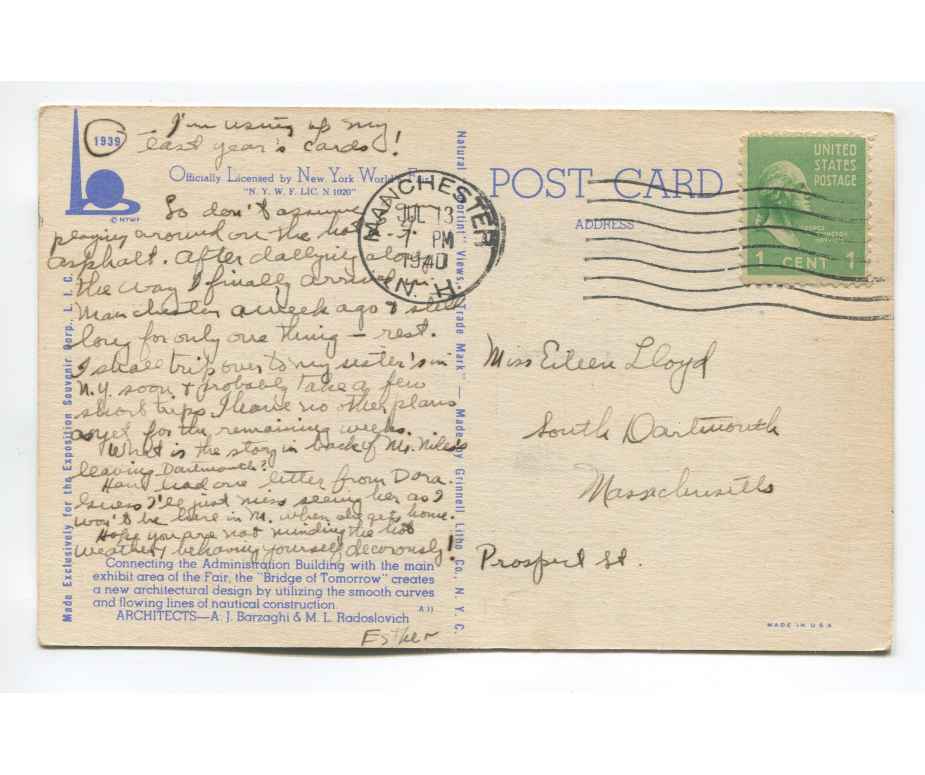 1939
— I'm using up my
last year's cards!
Officially Licensed by New York World's Fair
"N. Y. W. F. LIC. N 1020"
© NYWF
So don't assume
playing around on the hot
asphalt. After dallying along
the way I finally arrived in
Manchester a week ago & still
long for only one thing — rest.
I shall trip over to my sister's in
N.Y. soon & probably take a few
short trips. I have no other plans
as yet for the remaining weeks.
What is the story in back of Mr. Niles's
leaving Dartmouth?
Have had one letter from Dora.
Guess I'll just miss seeing her as I
won't be here in M. when she gets home.
Hope you are not minding the hot
weather, behaving yourself decorously!
Connecting the Administration Building with the main
exhibit area of the Fair, the "Bridge of Tomorrow" creates
a new architectural design by utilizing the smooth curves
and flowing lines of nautical construction.
A 11
ARCHITECTS—A. J. Barzaghi & M. L. Radoslovich
Esther
Made Exclusively for the Exposition Souvenir Corp., L. I. C.
Natural Views. Trade Mark"—Made by Grinnell Litho Co., N. Y. C.
MANCHESTER
JUL 13
7 PM
1940
N.H.
POST CARD
ADDRESS
UNITED
STATES
POSTAGE
1 CENT 1
Miss Eileen Lloyd
South Dartmouth
Massachusetts
Prospect St.
MADE IN U.S.A.